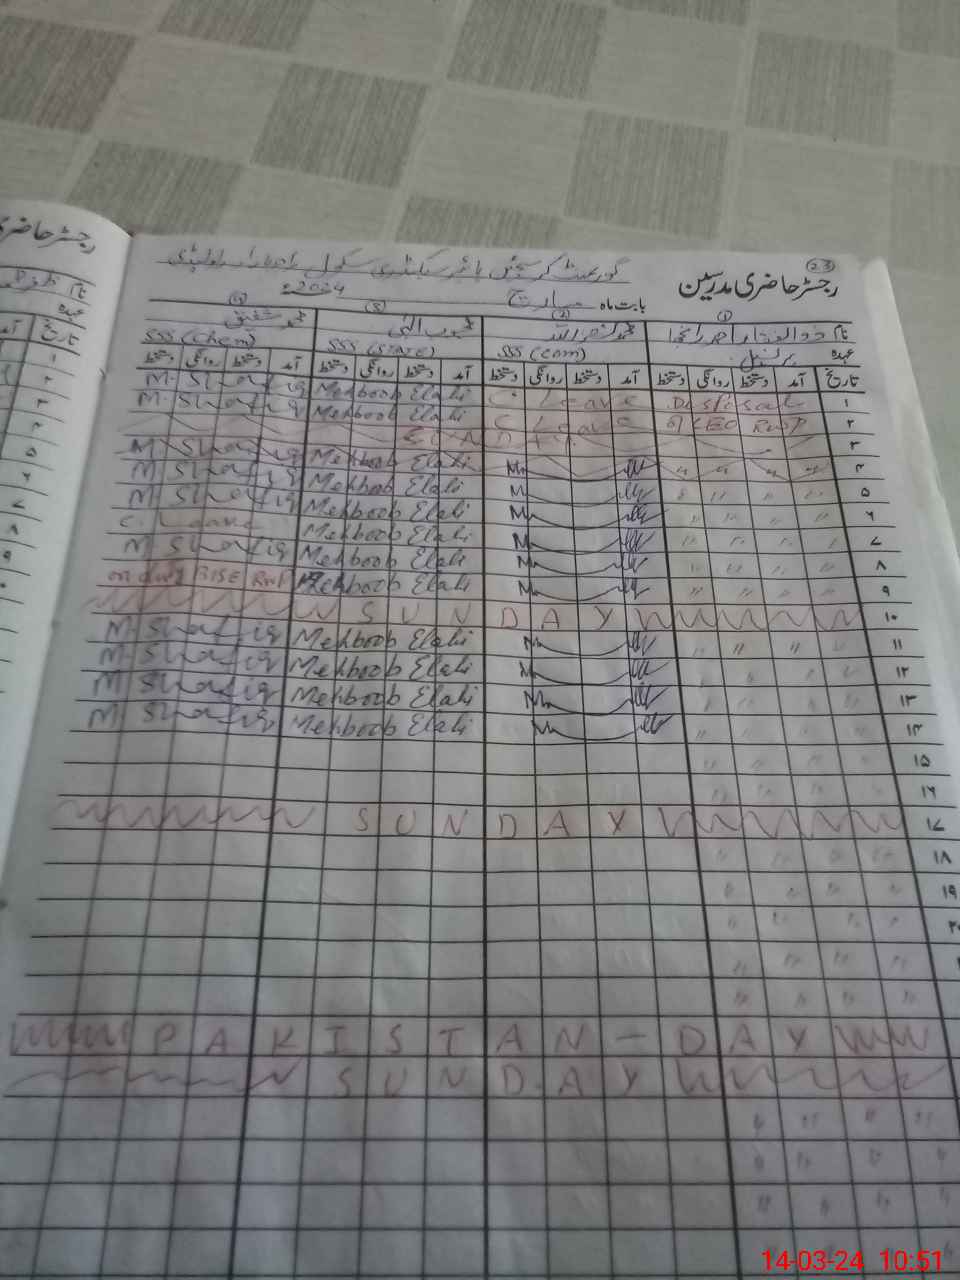 رجسٹر حاضری
رجسٹر حاضری مدرسین
23
گورنمنٹ کرسچن ہائر سیکنڈری سکول راجہ بازار راولپنڈی
بابت ماہ مارچ 2024ء
(1) (2) (3) (4)
نام ذوالفقار احمد محمد نصراللہ محبوب الہٰی محمد شفیق
عہدہ پرنسپل SSS (Com) SSS (STATE) SSS (Chem)
تاریخ آمد دستخط روانگی دستخط آمد دستخط روانگی دستخط آمد دستخط روانگی دستخط آمد دستخط روانگی دستخط
۱ Disposal C. Leave Mehboob Elahi M. Shafiq
۲ of CEO RWP C Leave Mehboob Elahi M. Shafiq
۳ SUNDAY
۴ " " " " Mehboob Elahi M Shafiq
۵ " " " " Mehboob Elahi M Shafiq
۶ " " " " Mehboob Elahi M Shafiq
۷ " " " " Mehboob Elahi C. Leave
۸ " " " " Mehboob Elahi M Shafiq
۹ " " " " Mehboob Elahi on duty BISE RWP
۱۰ SUNDAY
۱۱ " " " " Mehboob Elahi M Shafiq
۱۲ " " " " Mehboob Elahi M Shafiq
۱۳ " " " " Mehboob Elahi M Shafiq
۱۴ " " " " Mehboob Elahi M Shafiq
۱۵ " " " "
۱۶ " " " "
۱۷ SUNDAY
۱۸ " " " "
۱۹ " " " "
۲۰ " " " "
" " " "
" " " "
PAKISTAN - DAY
SUNDAY
" " " "
" " " "
" " " "
14-03-24 10:51